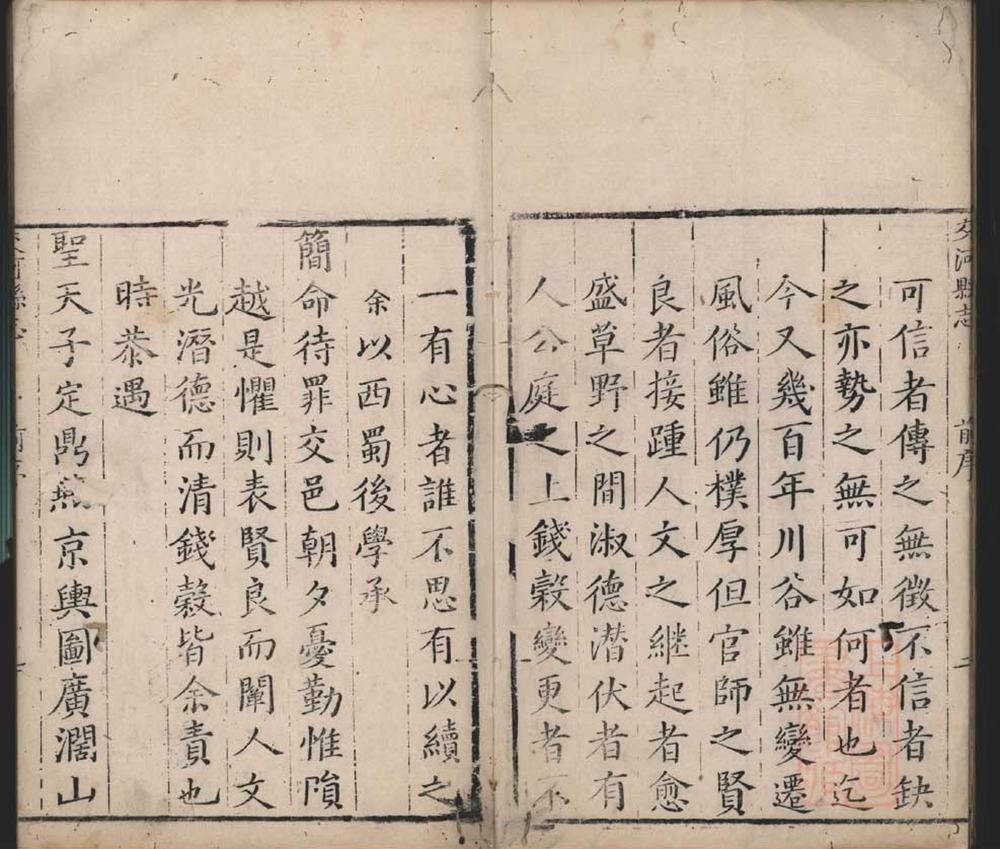 交河縣志
前序
二
可信者傳之無徵不信者缺
之亦勢之無可如何者也迄
今又幾百年川谷雖無變遷
風俗雖仍樸厚但官師之賢
良者接踵人文之継起者愈
盛草野之間淑德潛伏者有
人公庭之上錢穀變更者不
一有心者誰不思有以續之
余以西蜀後學承
簡命待罪交邑朝夕憂勤惟隕
越是懼則表賢良而闡人文
光潛德而清錢穀皆余責也
時恭遇
聖天子定鼎燕京輿圖廣濶山